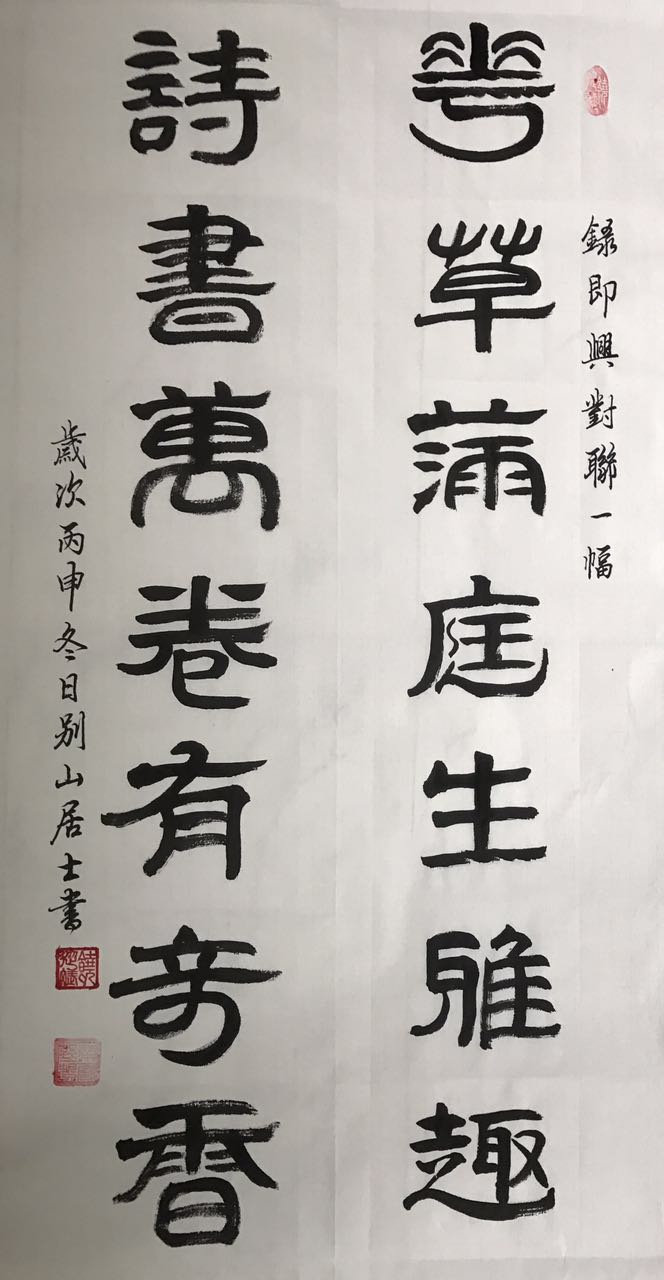 錄即興對聯一幅
花草滿庭生雅趣
詩書萬卷有奇香
歲次丙申冬日別山居士書